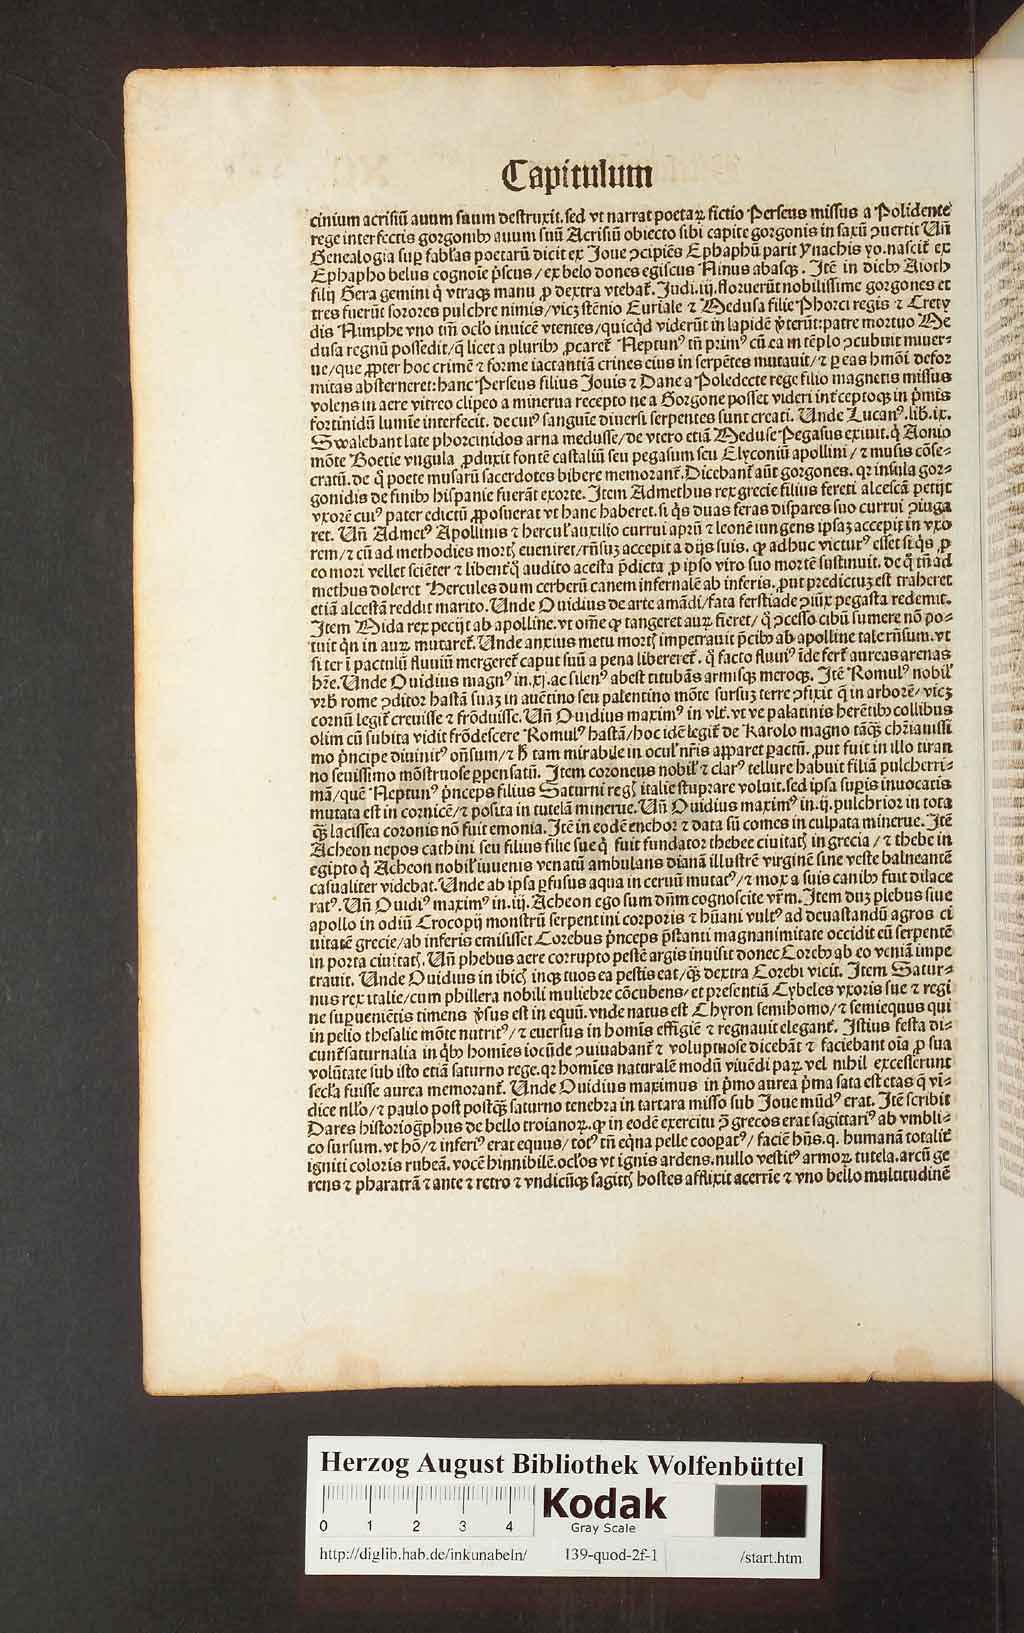 Capitulum
cinium acrisiū auum suum destruxit. sed vt narrat poetaꝝ fictio Perseus missus a Polidente
rege interfectis gorgonibꝫ auum suū Acrisiū obiecto sibi capite gorgonis in saxū ꝯuertit Vñ
Genealogia suꝑ fabl̓as poetarū dicit ex Joue ꝯcipiēs Ephaphū parit ynachis yo. nascit᷑ ex
Ephapho belus cognoīe p̓scus / ex belo dones egiscus Ninus abasqꝫ. Itē in diebꝫ Aioth
filij Gera gemini q̓ vtraqꝫ manu ꝓ dextra vtebat᷑. Judi. iij. floruerūt nobilissime gorgones et
tres fuerūt sorores pulchre nimis / vicꝫ stēnio Euriale ⁊ Medusa filie Phorci regis ⁊ Crety
dis Nimphe vno tm̄ ocl̓o inuicē vtentes / quicq̄d viderūt in lapidē v̓terūt: patre mortuo Me
dusa regnū possedit / q̄ licet a pluribꝫ ꝓcaret᷑ Neptunꝰ tn̄ primꝰ cū ea in tēplo ꝯcubuit miner-
ue / que ꝓpter hoc crimē ⁊ forme iactantiā crines eius in serpētes mutauit / ⁊ ꝑ eas hmōi defor
mitas absterneret: hanc Perseus filius Jouis ⁊ Dane a Poledecte rege filio magnetis missus
volens in aere vitreo clipeo a minerua recepto ne a Gorgone posset videri int᷑ceptoqꝫ in p̓mis
fortinidū lumīe interfecit. de cuiꝰ sanguīe diuersi serpentes sunt creati. Unde Lucanꝰ. lib. ix.
Swalebant late phorcinidos arna medusse / de vtero etiā Meduse Pegasus exiuit. q̓ Aonio
mōte Boetie vngula ꝓduxit fontē castaliū seu pegasum seu Elyconiū apollini / ⁊ musis cōse-
cratū. de q̓ poete musarū sacerdotes bibere memorant᷑. Dicebant᷑ aūt gorgones. qꝛ insula gor-
gonidis de finibꝫ hispanie fuerāt exorte. Item Admethus rex grecie filius fereti alcescā petijt
vxorē cuiꝰ pater edictū ꝓposuerat vt hanc haberet. si q̓s duas feras dispares suo currui ꝯiuga
ret. Vñ Admetꝰ Apollinis ⁊ hercul̓ auxilio currui aprū ⁊ leonē iungens ipsaꝫ accepit in vxo
rem / ⁊ cū ad methodies mortꝭ eueniret / rn̄suꝫ accepit a dijs suis. ꝙ adhuc victurꝰ esset si q̓s ꝓ
eo mori vellet sciēter ⁊ libent᷑ q̄ audito acesta p̄dicta ꝓ ipso viro suo mortē sustinuit. de q̓ tn̄ ad
methus doleret Hercules dum cerberū canem infernalē ab inferis. ꝓut predictuꝫ est traheret
etiā alcestā reddit marito. Unde Ouidius de arte amādi / fata ferstiade ꝯiūx pegasta redemit.
Item Mida rex pecijt ab apolline. vt om̄e ꝙ tangeret auꝝ fieret / q̓ ꝯcesso cibū sumere nō po-
tuit q̓n in auꝝ mutaret᷑. Unde anxius metu mortꝭ impetrauit p̄cibꝫ ab apolline tale rn̄sum. vt
si ter ī pactulū fluuiū mergeret᷑ caput suū a pena libereret᷑. q̓ facto fluuiꝰ īde fert᷑ aureas arenas
hr̄e. Unde Ouidius magnꝰ in. xj. ac silenꝰ abest titubās armisqꝫ meroqꝫ. Itē Romulꝰ nobil̓
vrb̓ rome ꝯditor hastā suaꝫ in auētino seu palentino mōte sursuꝫ terre ꝯfixit q̄ in arborē / vicꝫ
cornū legit᷑ creuisse ⁊ frōduisse. Vñ Ouidius maximꝰ in vlt̓. vt ve palatinis herētibꝫ collibus
olim cū subita vidit frōdescere Romulꝰ hastā / hoc idē legit᷑ de Karolo magno tāqꝫ chr̄ianissi
mo p̓ncipe diuinitꝰ on̄sum / ⁊ h̓ tam mirabile in ocul̓ nr̄is apparet pactū. ꝓut fuit in illo tiran
no seuissimo mōstruose ꝑpensatū. Item coroneus nobil̓ ⁊ clarꝰ tellure habuit filiā pulcherri-
mā / quē Neptunꝰ p̓nceps filius Saturni regꝭ italie stuprare voluit. sed ipsa suꝑis inuocatis
mutata est in cornicē / ⁊ posita in tutelā minerue. Vñ Ouidius maximꝰ in. ij. pulchrior in tota
qꝫ̄ lacissea coronis nō fuit emonia. Itē in eodē enchor ⁊ data sū comes in culpata minerue. Itē
Acheon nepos cathini seu filius filie sue q̓ fuit fundator thebee ciuitatꝭ in grecia / ⁊ thebe in
egipto q̓ Acheon nobil̓ iuuenis venatū ambulans dianā illustrē virginē sine veste balneantē
casualiter videbat. Unde ab ipsa ꝑfusus aqua in ceruū mutatꝰ / ⁊ mox a suis canibꝫ fuit dilace
ratꝰ. Vñ Ouidiꝰ maximꝰ in. iij. Acheon ego sum dn̄m cognoscite vr̄m. Item duꝫ plebus siue
apollo in odiū Crocopij monstrū serpentini corporis ⁊ hūani vultꝰ ad deuastandū agros ci
uitatē grecie / ab inferis emisisset Corebus p̓nceps p̄stanti magnanimitate occidit eū serpentē
in porta ciuitatꝭ. Vñ phebus aere corrupto pestē argis inuisit donec Corebꝫ ab eo veniā impe
trauit. Unde Ouidius in ibicꝭ inqꝫ tuos ea pestis eat / qꝫ̄ dextra Corebi vicit. Item Satur-
nus rex italie / cum phillera nobili muliebre cōcubens / et presentiā Cybeles vxoris sue ⁊ regi
ne suꝑueniētis timens v̓sus est in equū. vnde natus est Chyron semihomo / ⁊ semiequus qui
in pelio thesalie mōte nutritꝰ / ⁊ euersus in homīs effigiē ⁊ regnauit elegant᷑. Istius festa di-
cunt᷑ saturnalia in q̓bꝫ homīes iocūde ꝯuiuabant᷑ ⁊ voluptuose dicebāt ⁊ faciebant oīa ꝓ sua
volūtate sub isto etiā saturno rege. qꝛ homīes naturalē modū viuēdi paꝝ vel nihil excesserunt
secl̓a fuisse aurea memorant᷑. Unde Ouidius maximus in p̓mo aurea p̓ma sata est etas q̄ vī-
dice nll̓o / ⁊ paulo post postqꝫ̄ saturno tenebra in tartara misso sub Joue mūdꝰ erat. Itē scribit
Dares historiog̓phus de bello troianoꝝ. ꝙ in eodē exercitu ꝯ̄ grecos erat sagittariꝰ ab vmbli-
co sursum. vt hō / ⁊ inferiꝰ erat equus / totꝰ tn̄ eq̓na pelle cooꝑatꝰ / faciē hn̄s. q. humanā totalit᷑
igniti coloris rubeā. vocē hinnibilē. ocl̓os vt ignis ardens. nullo vestitꝰ armoꝝ tutela. arcū ge
rens ⁊ pharatrā ⁊ ante ⁊ retro ⁊ vndicūqꝫ sagittꝭ hostes afflixit acerrīe ⁊ vno bello multitudinē
Herzog August Bibliothek Wolfenbüttel
0 1 2 3 4
Kodak
Gray Scale
http://diglib.hab.de/inkunabeln/ 139-quod-2f-1 /start.htm